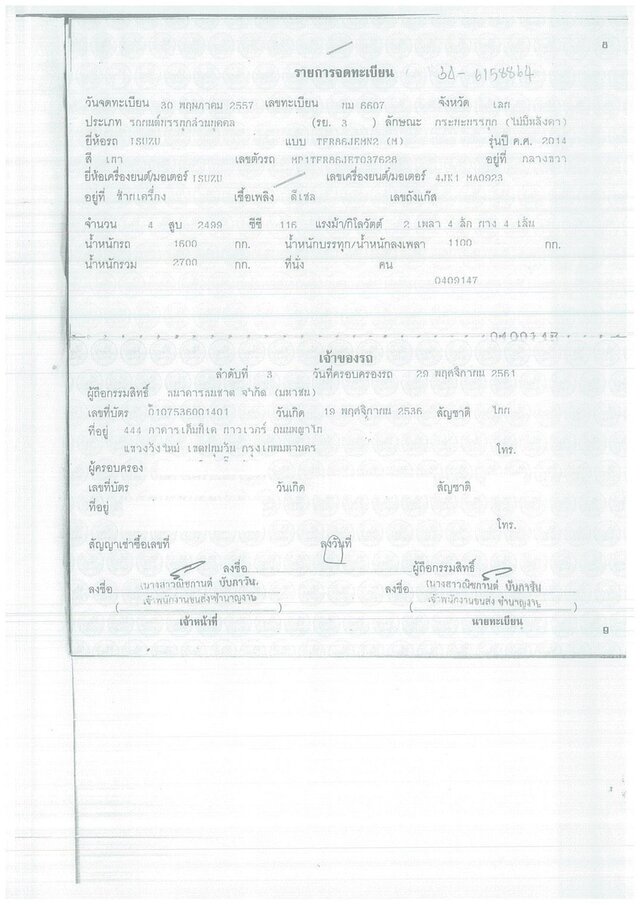 8
รายการจดทะเบียน 3A-6158864
วันจดทะเบียน 30 พฤษภาคม 2557 เลขทะเบียน บม 6607 จังหวัด เลย
ประเภท รถยนต์บรรทุกส่วนบุคคล (รย. 3 ) ลักษณะ กระบะบรรทุก (ไม่มีหลังคา)
ยี่ห้อรถ ISUZU แบบ TFR86JEMN2 (M) รุ่นปี ค.ศ. 2014
สี เทา เลขตัวรถ MP1TFR86JET037628 อยู่ที่ กลางขวา
ยี่ห้อเครื่องยนต์/มอเตอร์ ISUZU เลขเครื่องยนต์/มอเตอร์ 4JK1 MA0923
อยู่ที่ ซ้ายเครื่อง เชื้อเพลิง ดีเซล เลขถังแก๊ส
จำนวน 4 สูบ 2499 ซีซี 116 แรงม้า/กิโลวัตต์ 2 เพลา 4 ล้อ ยาง 4 เส้น
น้ำหนักรถ 1600 กก. น้ำหนักบรรทุก/น้ำหนักลงเพลา 1100 กก.
น้ำหนักรวม 2700 กก. ที่นั่ง คน
0409147
เจ้าของรถ
ลำดับที่ 3 วันที่ครอบครองรถ 29 พฤศจิกายน 2561
ผู้ถือกรรมสิทธิ์ ธนาคารธนชาต จำกัด (มหาชน)
เลขที่บัตร 0107536001401 วันเกิด 19 พฤศจิกายน 2536 สัญชาติ ไทย
ที่อยู่ 444 อาคารเอ็มบีเค ทาวเวอร์ ถนนพญาไท
แขวงวังใหม่ เขตปทุมวัน กรุงเทพมหานคร โทร.
ผู้ครอบครอง
เลขที่บัตร วันเกิด สัญชาติ
ที่อยู่
โทร.
สัญญาเช่าซื้อเลขที่ ลงวันที่
ลงชื่อ ผู้ถือกรรมสิทธิ์
ลงชื่อ (นางสาวณิชกานต์ ลงชื่อ (นางสาวณิชกานต์
(เจ้าพนักงานขนส่งชำนาญงาน) (เจ้าพนักงานขนส่งชำนาญงาน)
เจ้าหน้าที่ นายทะเบียน
9